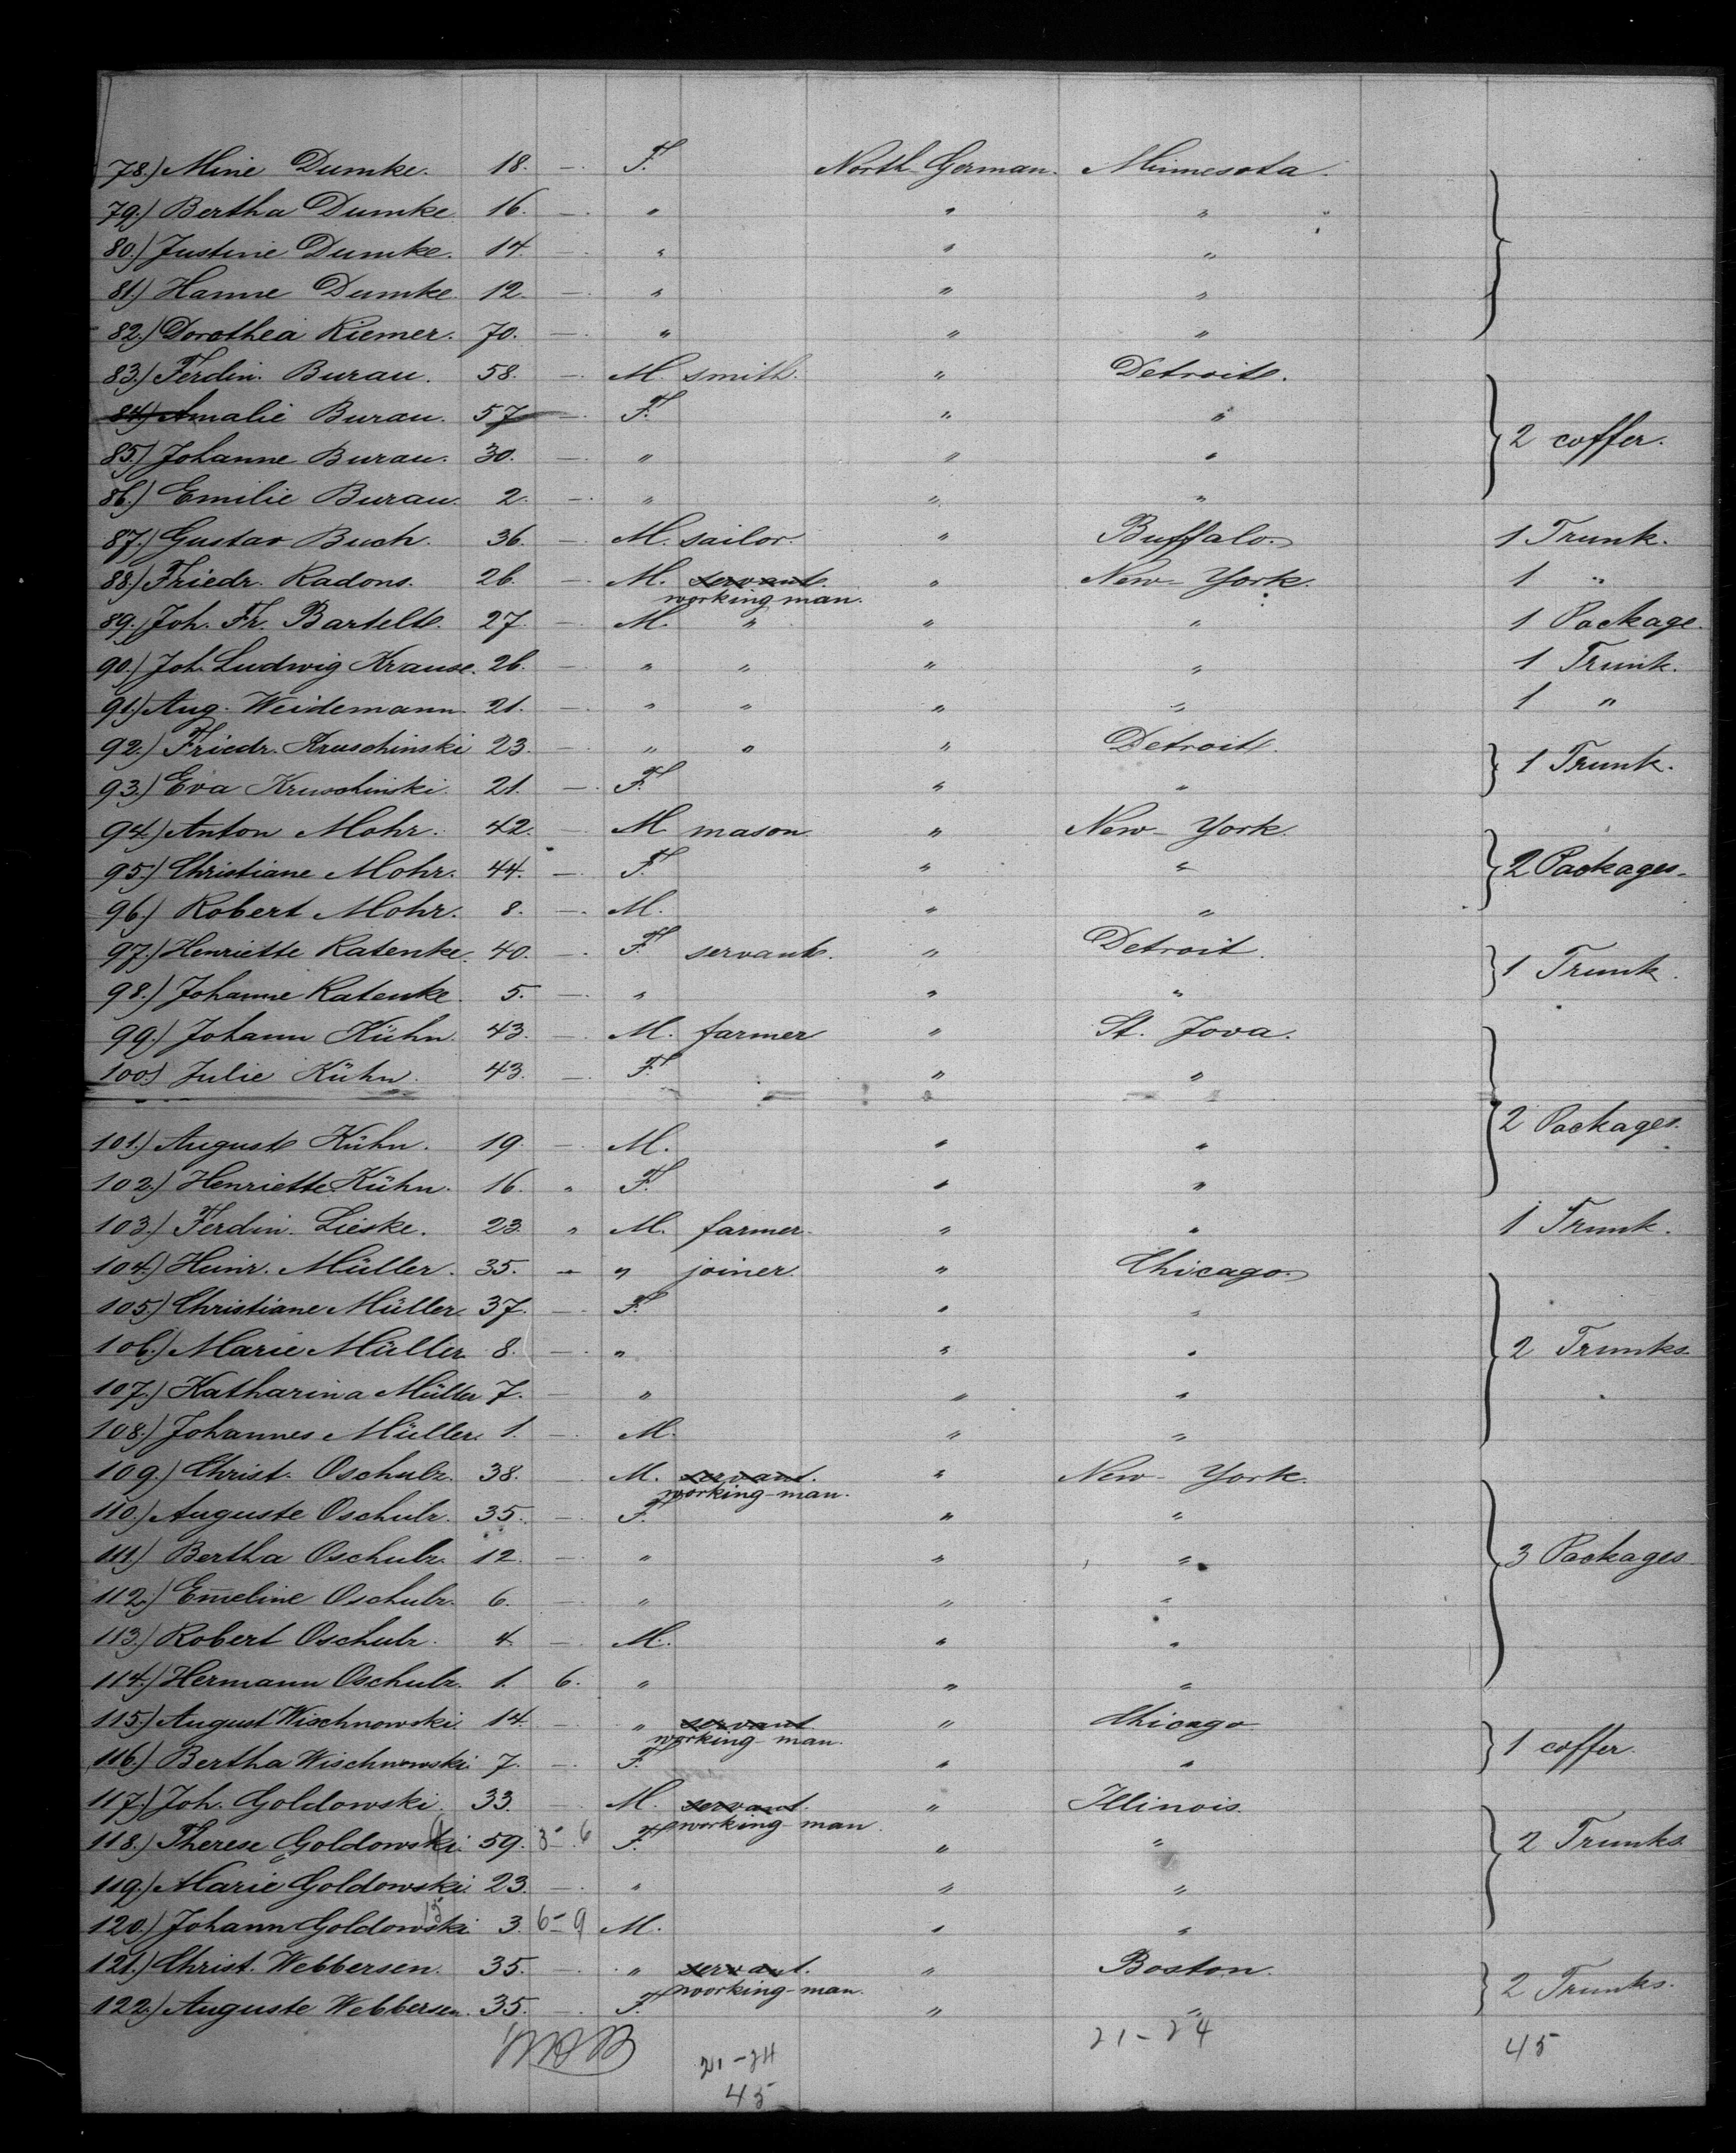 78.) Mine Dumke. 18. — F. North German. Minnesota.
79.) Bertha Dumke 16. — " " "
80.) Justine Dumke. 14. — " " "
81.) Hanne Dumke. 12. — " " "
82.) Dorothea Riemer. 70. — " " "
83.) Ferdin. Burau. 58. — M. smith. " Detroit.
84.) Amalie Burau. 57 — F. " " 2 coffer.
85.) Johanne Burau. 30. — " " "
86.) Emilie Burau. 2. — " " "
87.) Gustav Buch. 36. — M. sailor. " Buffalo. 1 Trunk.
88.) Friedr. Radons. 26. — M. servant. " New-York. 1 "
working man.
89.) Joh. Fr. Bartelt. 27. — M. " " " 1 Package.
90.) Joh. Ludwig Krause. 26. — " " " " 1 Trunk.
91.) Aug. Weidemann 21. — " " " " 1 "
92.) Friedr. Kruschinski 23. — " " " Detroit. 1 Trunk.
93.) Eva Kruschinski. 21. — F. " "
94.) Anton Mohr. 42. — M mason " New-York.
95.) Christiane Mohr. 44. — F. " " 2 Packages.
96.) Robert Mohr. 8. — M. " "
97.) Henriette Ratenke. 40. — F. servant. " Detroit. 1 Trunk.
98.) Johanne Ratenke. 5. — " " "
99.) Johann Kühn. 43. — M. farmer " St. Jova.
100.) Julie Kühn. 43. — F. " "
2 Packages.
101.) August Kühn. 19. — M. " "
102.) Henriette Kühn. 16. " F. " "
103.) Ferdin. Lieske. 23. " M. farmer. " " 1 Trunk.
104.) Heinr. Müller. 35. — " joiner. " Chicago.
105.) Christiane Müller. 37. — F. " "
106.) Marie Müller 8. — " " " 2 Trunks.
107.) Katharina Müller 7. — " " "
108.) Johannes Müller. 1. — M. " "
109.) Christ. Oschulz. 38. — M. servant. " New-York.
working-man.
110.) Auguste Oschulz. 35. — F. " "
111.) Bertha Oschulz. 12. — " " " 3 Packages
112.) Em̄eline Oschulz. 6. — " " "
113.) Robert Oschulz. 4. — M. " "
114.) Hermann Oschulz. 1. 6. " " "
115.) August Wischnowski. 14. — " servant " Chicago 1 coffer.
working-man.
116.) Bertha Wischnowski. 7. — F. " "
117.) Joh. Goldowski. 33. — M. servant. " Illinois.
working-man
118.) Therese Goldowski. 59. 3-6 F. " " 2 Trunks.
119.) Marie Goldowski. 23. — " " "
120.) Johann Goldowski 3. 6-9 M. " "
121.) Christ. Webbersen. 35. — " servant. " Boston. 2 Trunks.
working-man.
122.) Auguste Webbersen. 35. — F. " "
21-24 21-24 45
45